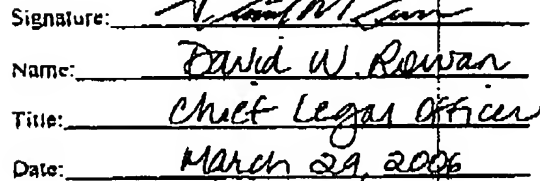 Signature:
Name: David W. Rowan
Title: Chief Legal Officer
Date: March 29, 2006